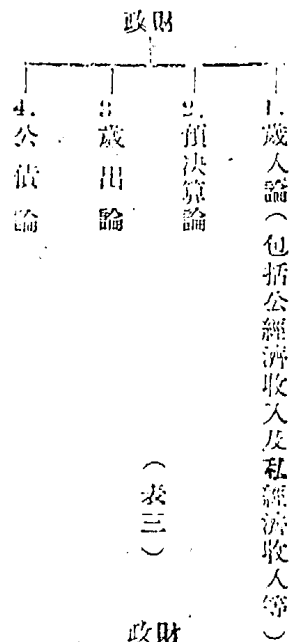 政財
1.歲入論(包括公經濟收入及私經濟收入等)
2.預決算論
3.歲出論
4.公債論
(表三)
政財